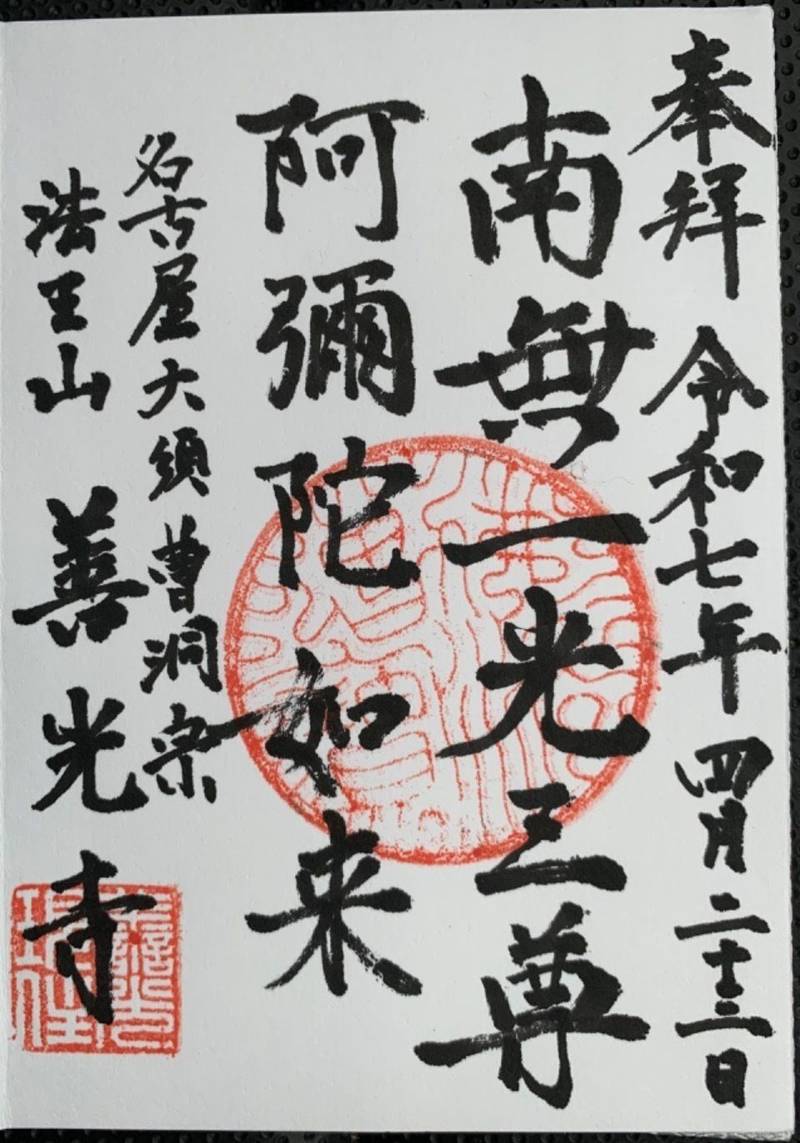 奉拜 令和七年 四月 二十三日
南無一光三尊
阿彌陀如来
名古屋大須 曹洞宗
法王山 善光寺